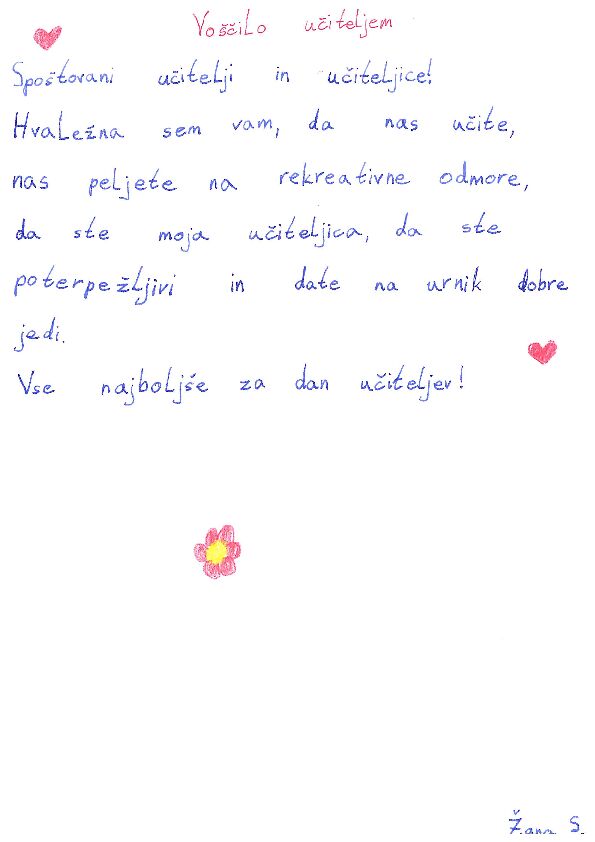 Voščilo učiteljem
Spoštovani učitelji in učiteljice!
Hvaležna sem vam, da nas učite,
nas peljete na rekreativne odmore,
da ste moja učiteljica, da ste
poterpežljivi in date na urnik dobre
jedi.
Vse najboljše za dan učiteljev!
Žana S.